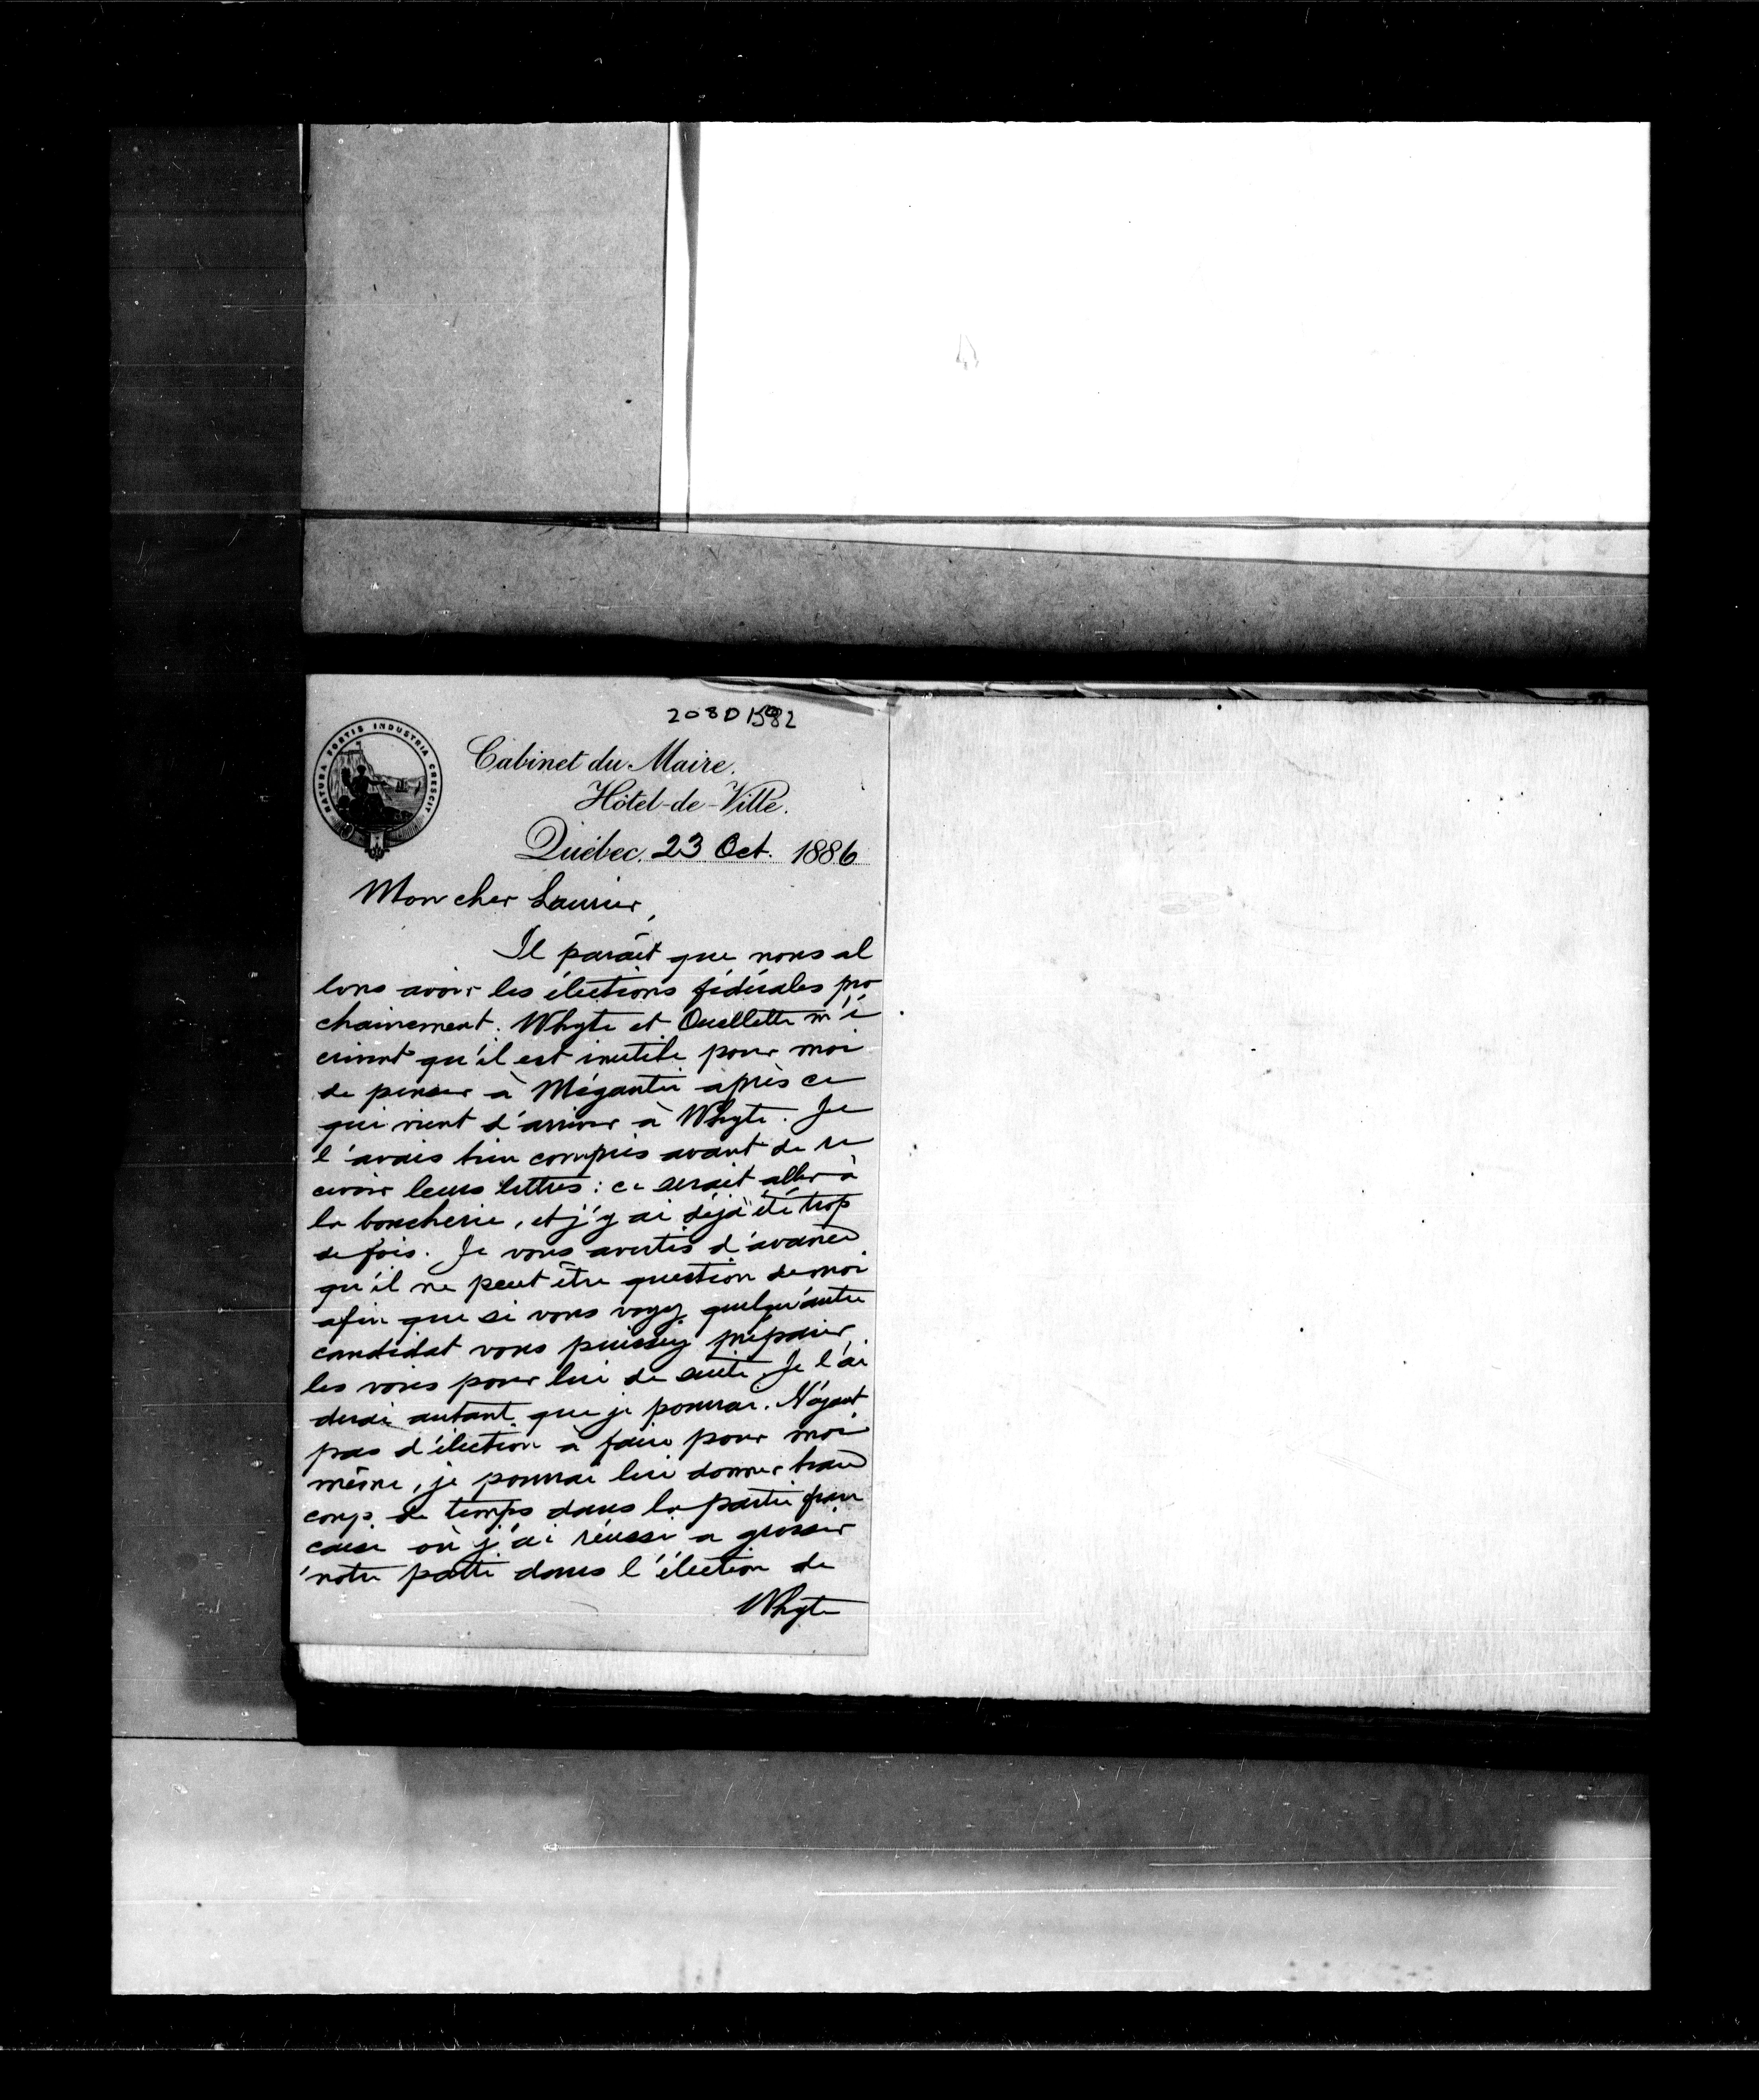 208D 1582
NATURA FORTIS INDUSTRIA CRESCIT
Cabinet du Maire.
Hôtel-de-Ville.
Québec, 23 Oct. 1886
Mon cher Laurier,
Il parait que nous al
lons avoir les élections fédérales pro
chainement. Whyte et Ouellette m'é
crivent qu'il est inutile pour moi
de penser à Mégantic après ce
qui vient d'arriver à Whyte. Je
l'avais bien compris avant de re
cevoir leurs lettres : ce serait aller à
la boucherie, et j'y ai déjà été trop
de fois. Je vous avertis d'avance
qu'il ne peut être question de moi
afin que si vous voyez quelqu'autre
candidat vous puissiez préparer
les voies pour lui de suite. Je l'ai
derai autant que je pourrai. N'ayant
pas d'élection à faire pour moi
même, je pourrai lui donner beau
coup de temps dans la partie fran
caise où j'ai réussi a grossir
notre parti dans l'élection de
Whyte